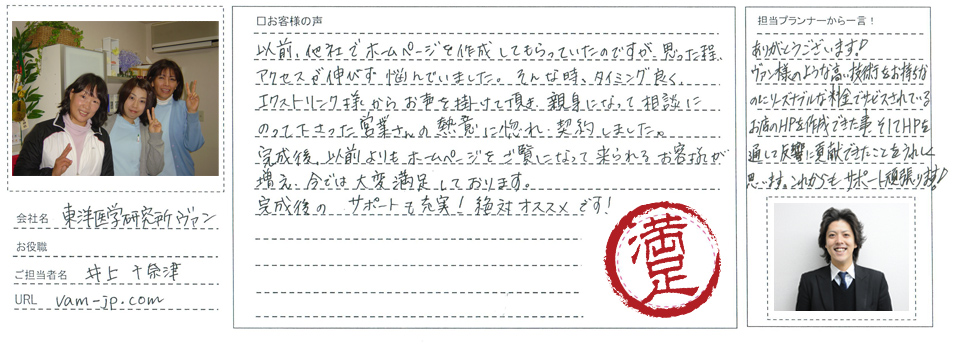 会社名 東洋医学研究所ヴァン
お役職
ご担当者名 井上 十奈津
URL vam-jp.com
□お客様の声
以前、他社でホームページを作成してもらっていたのですが、思った程、
アクセスが伸びず悩んでいました。そんな時、タイミング良く、
エクストリンク様からお声を掛けて頂き、親身になって相談に
のって下さった営業さんの熱意に惚れ、契約しました。
完成後、以前よりもホームページをご覧になって来られるお客様が
増え、今では大変満足しております。
完成後の サポートも充実！絶対オススメです！
満足
担当プランナーから一言！
ありがとうございます！
ヴァン様のような高い技術をお持ちか
つリーズナブルな料金でサービスされている
お店のHPを作成できた事、そしてHPを
通して反響に貢献できたことをうれしく
思います。これからもサポート頑張ります！